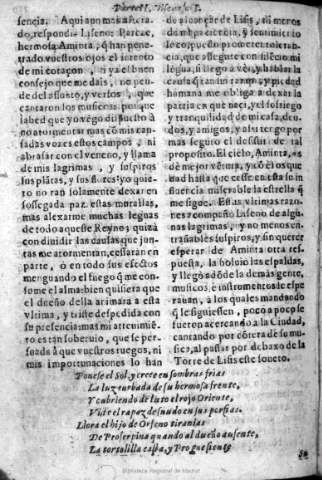 Parte I. Discurso I.
sencia. Aqui aun mas ayrado,
respondio Liseno: Parece,
hermosa Aminta, q̃ han penetrado
vuestros ojos el intento
de mi coraçon, ni y el buen
consejo que me dais, no pende
del assunto, y versos, que
cantaron los musicos, porque
sabed que yo vego dispuesto à
no atormentar mas cõ mis cansadas
vozes estos campos, ni
abrasar con el veneno, y llama
de mis lagrimas, y suspiros
sus plãtas, y sus flores: yo quieto
no tan solamente dexar en
sossegada paz estas murallas,
mas alexarme muchas leguas
de todo aqueste Reyno; quizà
con diuidir las causas que juntas
me atormentan, cessaràn en
parte, ò en todo sus efectos
menguando el fuego q̃ me consume
el alma: bien quisiera que
el dueño della arimara a esta
vltima, y triste despedida con
su presencia: mas mi atreuimiẽto
es tan soberuio, que se persuade
à que vuestros ruegos, ni
mis importunaciones lo han
de alcançar de Lisis, si menos
de mi paciencia, y sentimiento
le con puesto prometer tolerancia,
que assegure con silencio mi
lengua, si llego à ver, y hablar la
causa de tan as rarap as, y
humana me obliga a dexar la
patria en que naci, y el sossiego
y tranquilidad de mi casa, deudos,
y amigos, y assi tẽ go por
mas seguro el desistir de tal
proposito. El cielo, Aminta,
dè mejor vẽtura, y cõ el os quede
hasta que cesse en esta su influencia
miserable la estrella q̃
me sigue. Estas vltimas razones
acompaño Liseno de algunas
lagrimas, y no menos entrañables
suspiros, y sin querer
esperar de Aminta otra respuesta,
la boluio las espaldas,
y llegò adõde la demàs gente,
musicos, è instrumentos le esperauan,
a los quales mandando
q̃ le siguiessen, poco a poco se
fueron acercando a la Ciudad,
cantando por cõtera de su musica,
al passar por debaxo de la
Torre de Lisis este soneto.
Ponese el Sol, y crece en sombras frias
La luz turbada de su hermosa frente,
Y cubriendo de luto el rojo Oriente,
Viste el rapaz desnudo en sus porfias.
Llora el hijo de Orfeno tiranias
De Proserpina quando al dueño ausente,
La tortolilla casta, y Progne siente
Biblioteca Regional de Madrid